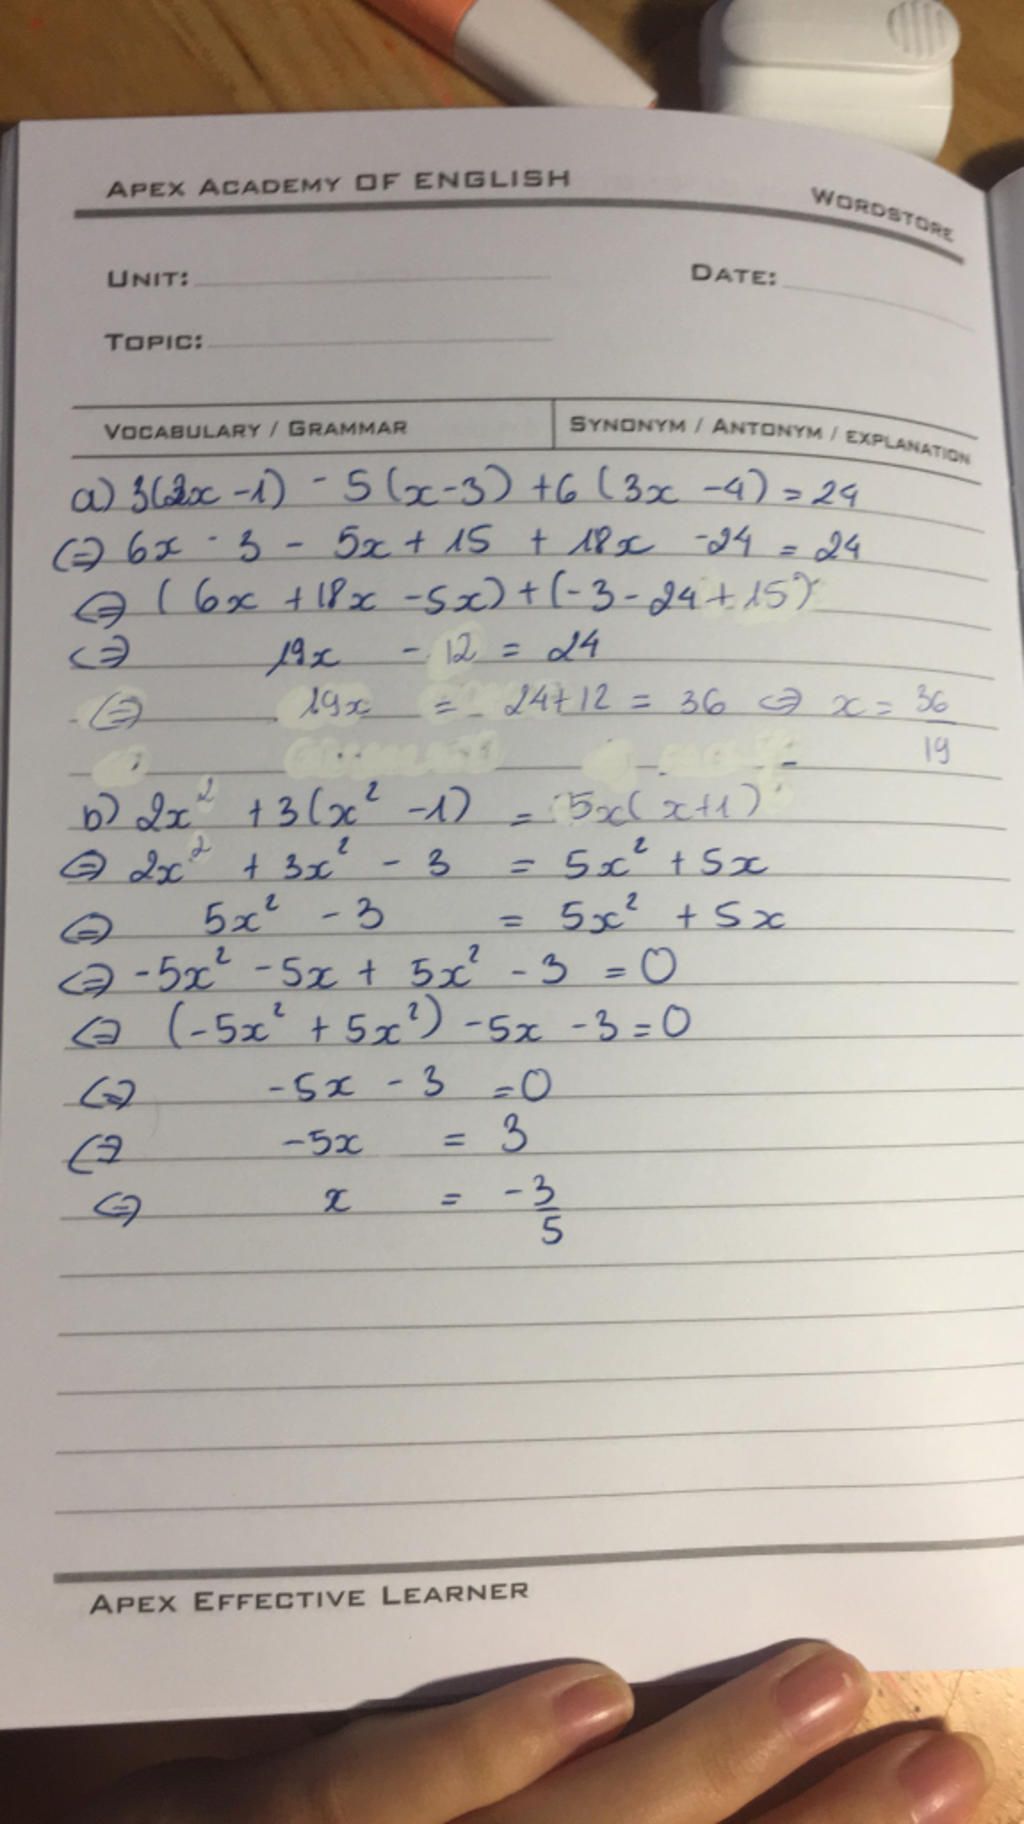 APEX ACADEMY OF ENGLISH
WORDSTORE
UNIT:
DATE:
TOPIC:
VOCABULARY / GRAMMAR
SYNONYM / ANTONYM / EXPLANATION
a) 3(2x -1) - 5(x-3) +6 (3x -4) = 24
<=> 6x - 3 - 5x + 15 + 18x -24 = 24
<=> ( 6x +18x -5x) + (-3 - 24 + 15)
<=> 19x - 12 = 24
<=> 19x = 24+12 = 36 <=> x = 36/19
b) 2x² +3(x² -1) = 5x( x+1)
<=> 2x² + 3x² - 3 = 5x² + 5x
<=> 5x² - 3 = 5x² + 5x
<=> -5x² -5x + 5x² - 3 = 0
<=> (-5x² + 5x²) -5x -3 = 0
<=> -5x - 3 = 0
<=> -5x = 3
<=> x = -3/5
APEX EFFECTIVE LEARNER